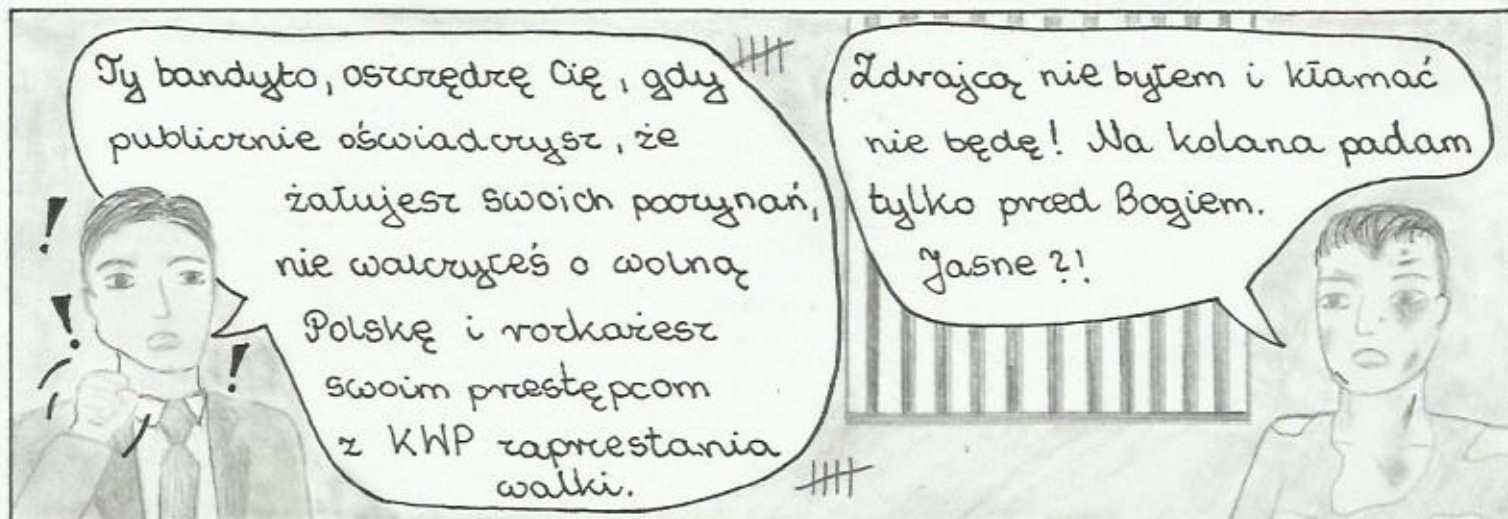 Ty bandyto, oszczędzę Cię, gdy
publicznie oświadczysz, że
żałujesz swoich poczynań,
nie walczyłeś o wolną
Polskę i rozkażesz
swoim przestępcom
z KWP zaprzestania
walki.
Zdrajcą nie byłem i kłamać
nie będę! Na kolana padam
tylko przed Bogiem.
Jasne?!